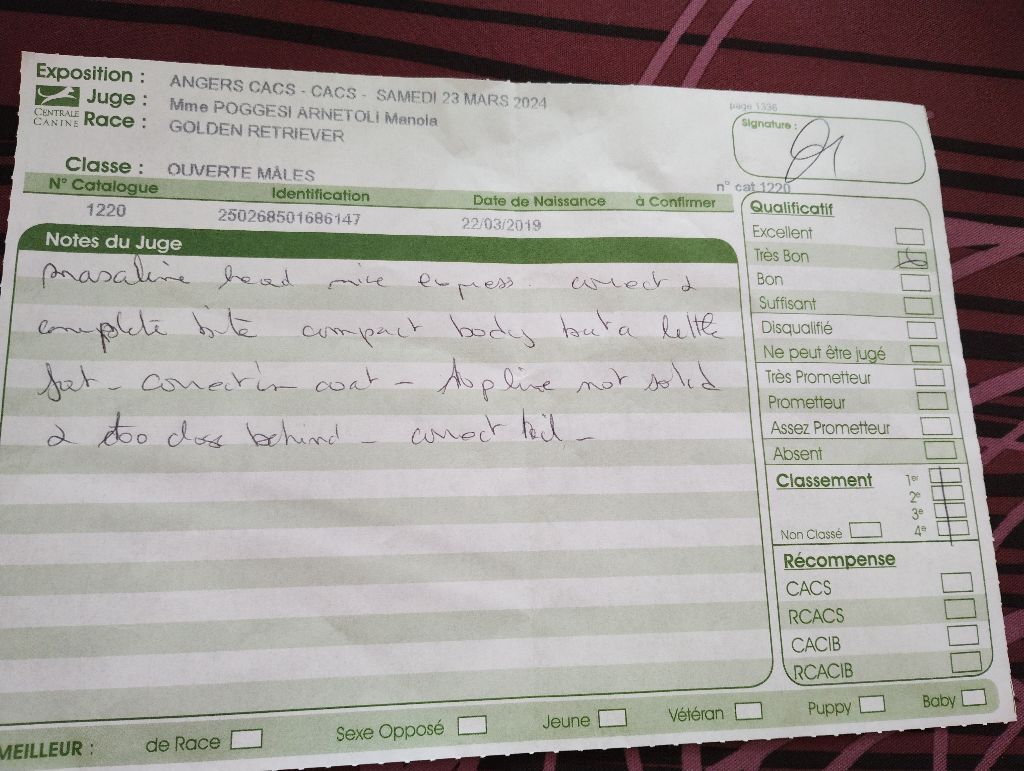 Exposition : ANGERS CACS - CACS - SAMEDI 23 MARS 2024
CENTRALE CANINE
Juge : Mme POGGESI ARNETOLI Manola
Race : GOLDEN RETRIEVER
page 1336
Signature :
Classe : OUVERTE MÂLES
n° cat 1220
N° Catalogue Identification Date de Naissance à Confirmer
1220 250268501686147 22/03/2019
Notes du Juge
masculine head nice express. correct &
complete bite compact body but a little
fat - correct in coat - topline not solid
& too close behind - correct tail -
Qualificatif
Excellent
Très Bon
Bon
Suffisant
Disqualifié
Ne peut être jugé
Très Prometteur
Prometteur
Assez Prometteur
Absent
Classement 1er
2e
3e
Non Classé 4e
Récompense
CACS
RCACS
CACIB
RCACIB
MEILLEUR : de Race Sexe Opposé Jeune Vétéran Puppy Baby